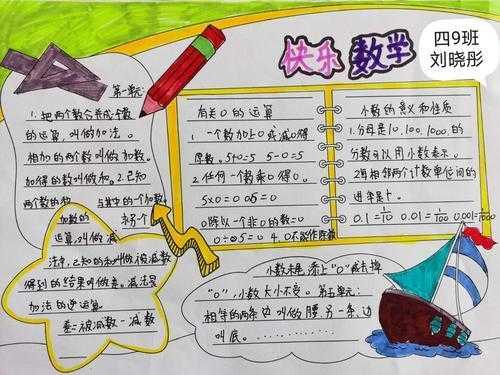 快乐 数学
四9班
刘晓彤
第一单元:
1.把两个数合并成一个数
的运算,叫做加法。
相加的两个数叫做加数。
加得的数叫做和。2.已知
两个数的和 与其中的一个加数,
求另一个
加数的
运算,叫做减
法中,已知的和叫做被减数
得到的结果叫做差。减法是
加法的逆运算
差=被减数-减数
有关0的运算
1.一个数加上0或减0得
原数。5+0=5 5-0=5
2.任何一个数乘0得0。
5×0=0
0除以一个非0的数=0
0÷5=0 4.0不能作除数
小数的意义和性质
1.分母是10,100,1000.的
分数可以用小数表示。
2.每相邻两个计数单位间的
进率是十。
0.1=1/10 0.01=1/100 0.001=1/1000
小数末尾,添上"0"或去掉
"0",小数大小不变。第五单元:
相等的两条边叫做腰另一条边
叫底。